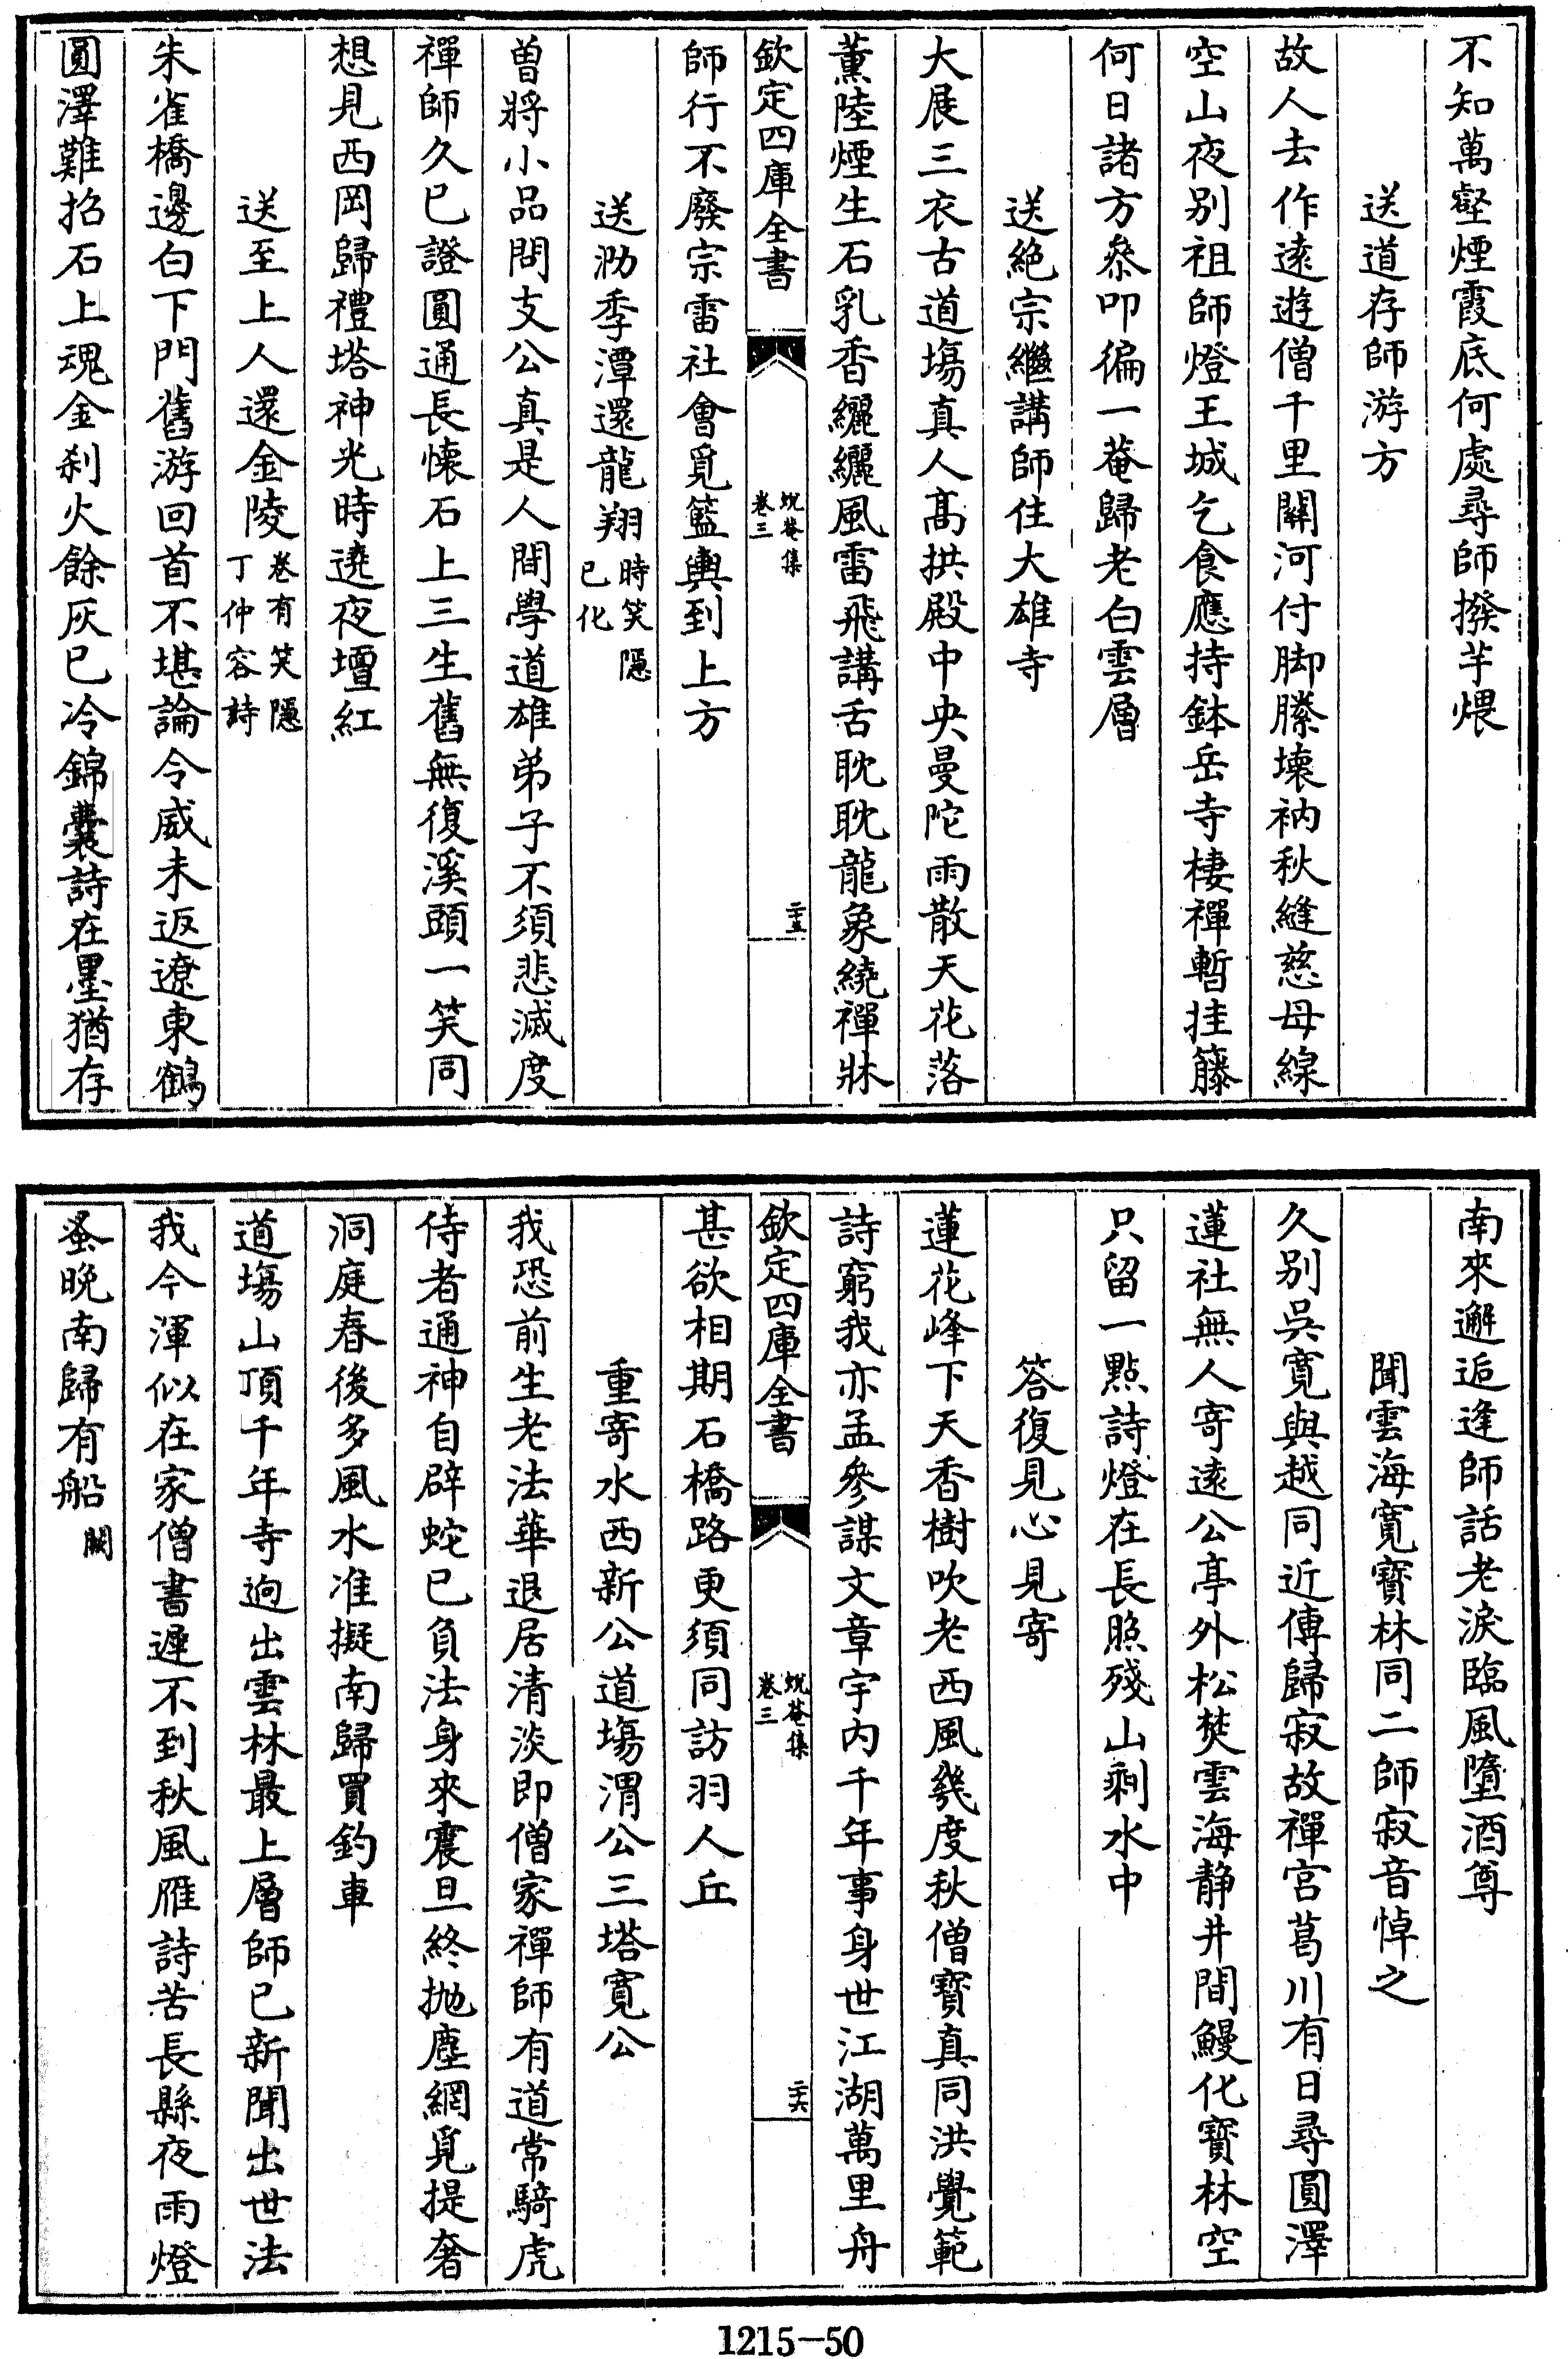 不知萬壑煙霞底何處尋師撥芋煨
送道存師游方
故人去作遠遊僧千里關河付脚縢壊衲秋縫慈母線
空山夜别祖師燈王城乞食應持鉢岳寺棲禪暫挂籐
何日諸方叅叩徧一菴歸老白雲層
送絶宗繼講師住大雄寺
大展三衣古道塲真人髙拱殿中央曼陀雨散天花落
薰陸煙生石乳香纚纚風雷飛講舌耽耽龍象繞禪牀
欽定四庫全書
蛻菴集
卷三
二十五
師行不廢宗雷社會覓籃輿到上方
送泐季潭還龍翔時笑隱
已化
曽將小品問支公真是人間學道雄弟子不須悲滅度
禪師久已證圓通長懐石上三生舊無復溪頭一笑同
想見西岡歸禮塔神光時遶夜壇紅
送至上人還金陵卷有笑隱
丁仲容詩
朱雀橋邊白下門舊游回首不堪論令威未返遼東鶴
圓澤難招石上魂金刹火餘灰已冷錦囊詩在墨猶存
南來邂逅逢師話老淚臨風墮酒尊
聞雲海寛寳林同二師寂音悼之
久别吳寛與越同近傳歸寂故禪宫葛川有日尋圓澤
蓮社無人寄遠公亭外松焚雲海静井間鰻化寳林空
只留一點詩燈在長照殘山剰水中
答復見心見寄
蓮花峰下天香樹吹老西風幾度秋僧寳真同洪覺範
詩窮我亦孟參謀文章宇内千年事身世江湖萬里舟
欽定四庫全書
蛻菴集
卷三
二十六
甚欲相期石橋路更須同訪羽人丘
重寄水西新公道塲渭公三塔寛公
我恐前生老法華退居清淡即僧家禪師有道常騎虎
侍者通神自辟蛇已負法身來震旦終抛塵網覓提奢
洞庭春後多風水准擬南歸買釣車
道塲山頂千年寺逈出雲林最上層師已新聞出世法
我今渾似在家僧書遲不到秋風雁詩苦長縣夜雨燈
蚤晚南歸有船闕
1215-50